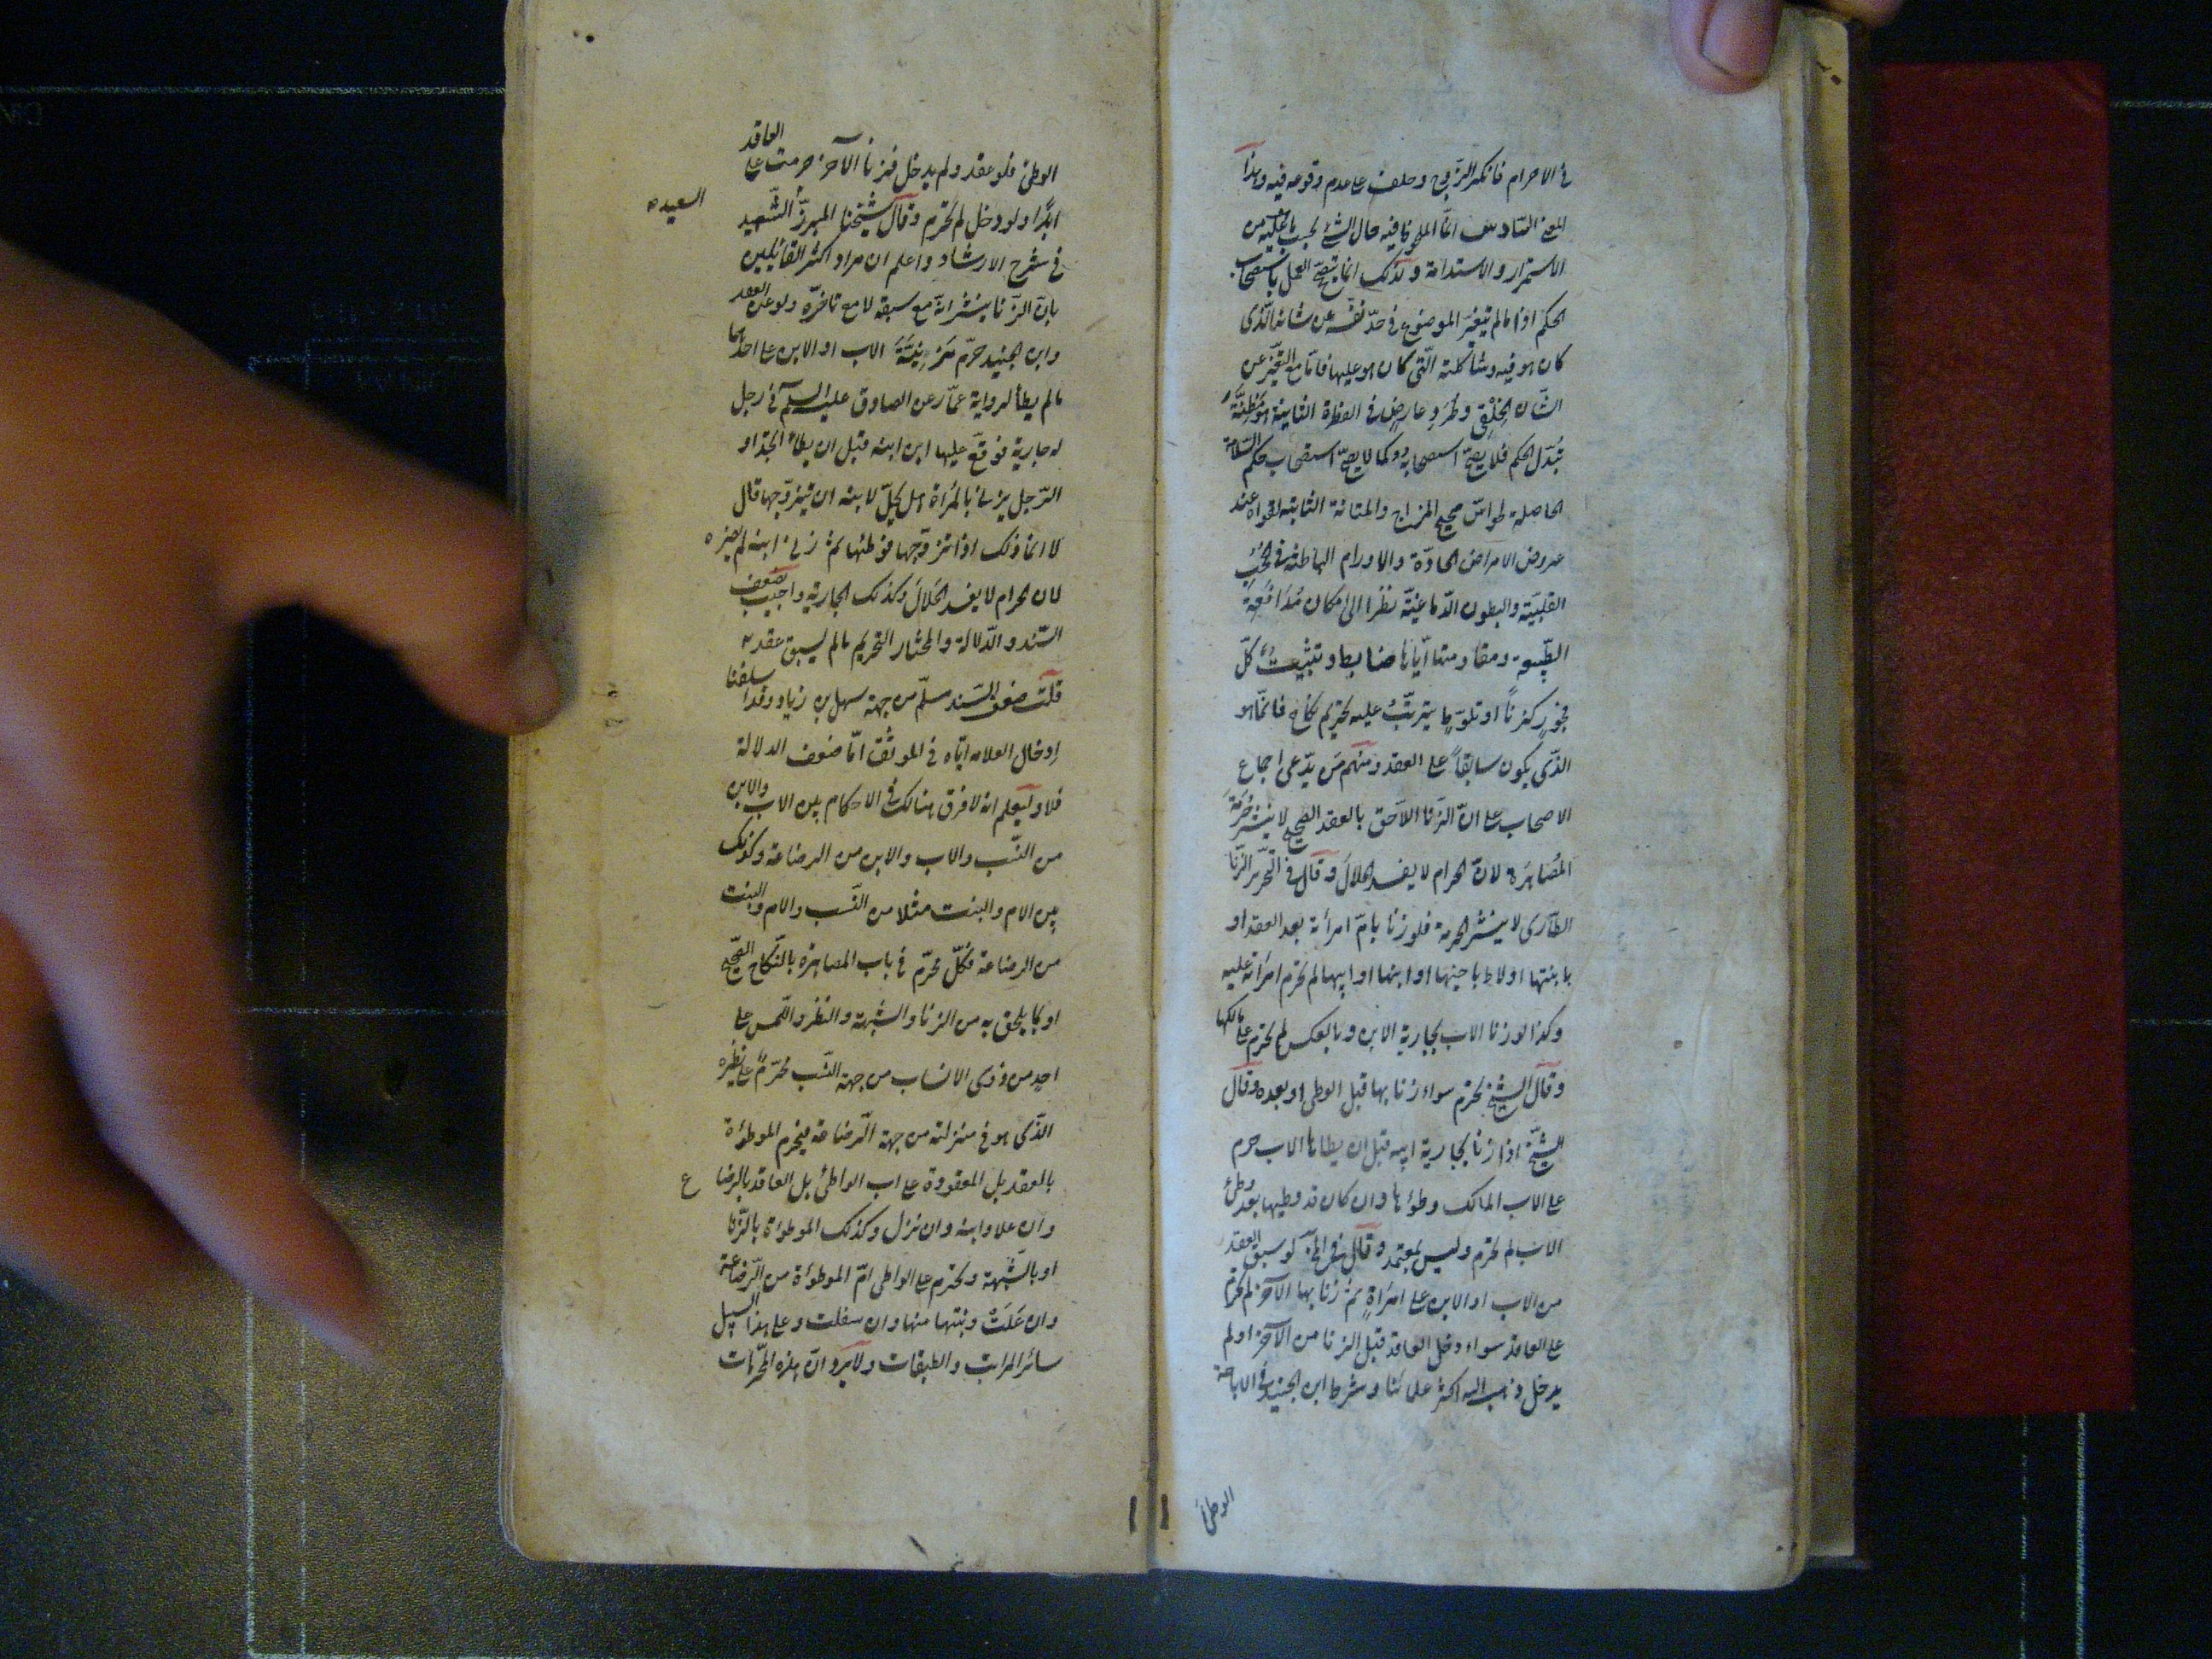 في الاحرام فانكر الزوج وحلف على عدم وقوعه فيه وهذا
المعنى السادس انما الملحوظ فيه حال الشيء بحسب ما عليه من
الاستمرار والاستدامة ولذلك انما يتصحح العمل باستصحاب
الحكم اذا ما لم يتغير الموضوع في حد نفسه عن شانه الذي
كان هو فيه وشاكلته التي كان هو عليها فاما مع التغير عن
الشان الخلقي وطرو عارض في الفطرة الثانية هو مظنة
تبدل الحكم فلا يصح استصحابه وكما لا يصح استصحاب حكم السلامة
الحاصلة لحواس صحيح المزاج والمتانة الثابتة لقواه عند
عروض الامراض الحادة والاورام الباطنة في الحجب
القلبية والبطون الدماغية نظرا الى امكان مدافعة
الطبيعة ومقاومتها اياها ضابط وتثبيت كل
فجور كزنا او تلوط يترتب عليه تحريم نكاح فانما هو
الذي يكون سابقا على العقد ومنهم من يدعي اجماع
الاصحاب على ان الزنا اللاحق بالعقد الصحيح لا ينشر حرمة
المصاهرة لان الحرام لا يفسد الحلال وقال في التحرير الزنا
الطاري لا ينشر الحرمة فلو زنا بام امرأته بعد العقد او
بابنتها او لاط باخيها او ابنها او ابيها لم تحرم امرأته عليه
وكذا لو زنا الاب بجارية الابن وبالعكس لم تحرم على مالكها
وقال الشيخ تحرم سواء زنا بها قبل الوطي او بعده وقال
الشيخ اذا زنا بجارية ابيه قبل ان يطاها الاب حرم
على الاب المالك وطؤها وان كان قد وطيها بعد وطئ
الاب لم تحرم وليس بمعتمد وقال في لو سبق العقد
من الاب او الابن على امرأة ثم زنا بها الآخر لم تحرم
على العاقد سواء دخل العاقد قبل الزنا من الآخر او لم
يدخل وذهب اليه اكثر علمائنا وشرط ابن الجنيد في الاباحة
الوطئ
العاقد
الوطئ فلو عقد ولم يدخل فزنا الآخر حرمت على
ابدا ولو دخل لم تحرم وقال شيخنا المبرز الشهيد
السعيد
في شرح الارشاد واعلم ان مراد اكثر القائلين
بان الزنا ينشر انه مع سبقه لا مع تاخره ولو عن العقد
وابن الجنيد حرم مزنية الاب او الابن على احدهما
ما لم يطأ لرواية عمار عن الصادق عليه السلم في رجل
له جارية فوقع عليها ابن ابنه قبل ان يطاه الجد او
الرجل يزني بالمرأة هل يحل لابنه ان يتزوجها قال
لا انما ذلك اذا تزوجها فوطئها ثم زنى ابنه لم يضره
لان الحرام لا يفسد الحلال وكذلك الجارية واجيب بضعف
السند والدلالة والمختار التحريم ما لم يسبق عقد
قلت ضعف السند مسلم من جهة سهل بن زياد وقد اسلفنا
ادخال العلامة اياه في الموثق اما ضعف الدلالة
فلا وليعلم انه لا فرق هنالك في الاحكام بين الاب والابن
من النسب والاب والابن من الرضاعة وكذلك
بين الام والبنت مثلا من النسب والام والبنت
من الرضاعة فكل محرم في باب المصاهرة بالنكاح الصحيح
او بما يلحق به من الزنا والشبهة والنظر واللمس على
احد من ذوي الانساب من جهة النسب محرم على نظيره
الذي هو في منزلته من جهة الرضاعة فيحرم الموطؤة
بالعقد بل المعقودة على اب الواطئ بل العاقد بالرضا
ع
وان علا وابنه وان نزل وكذلك الموطؤة بالزنا
او بالشبهة وتحرم على الواطي ام الموطؤة من الرضاعة
وان علت وبنتها منها وان سفلت وعلى هذا السبيل
سائر المراتب والطبقات ولا يرد ان هذه المحرمات